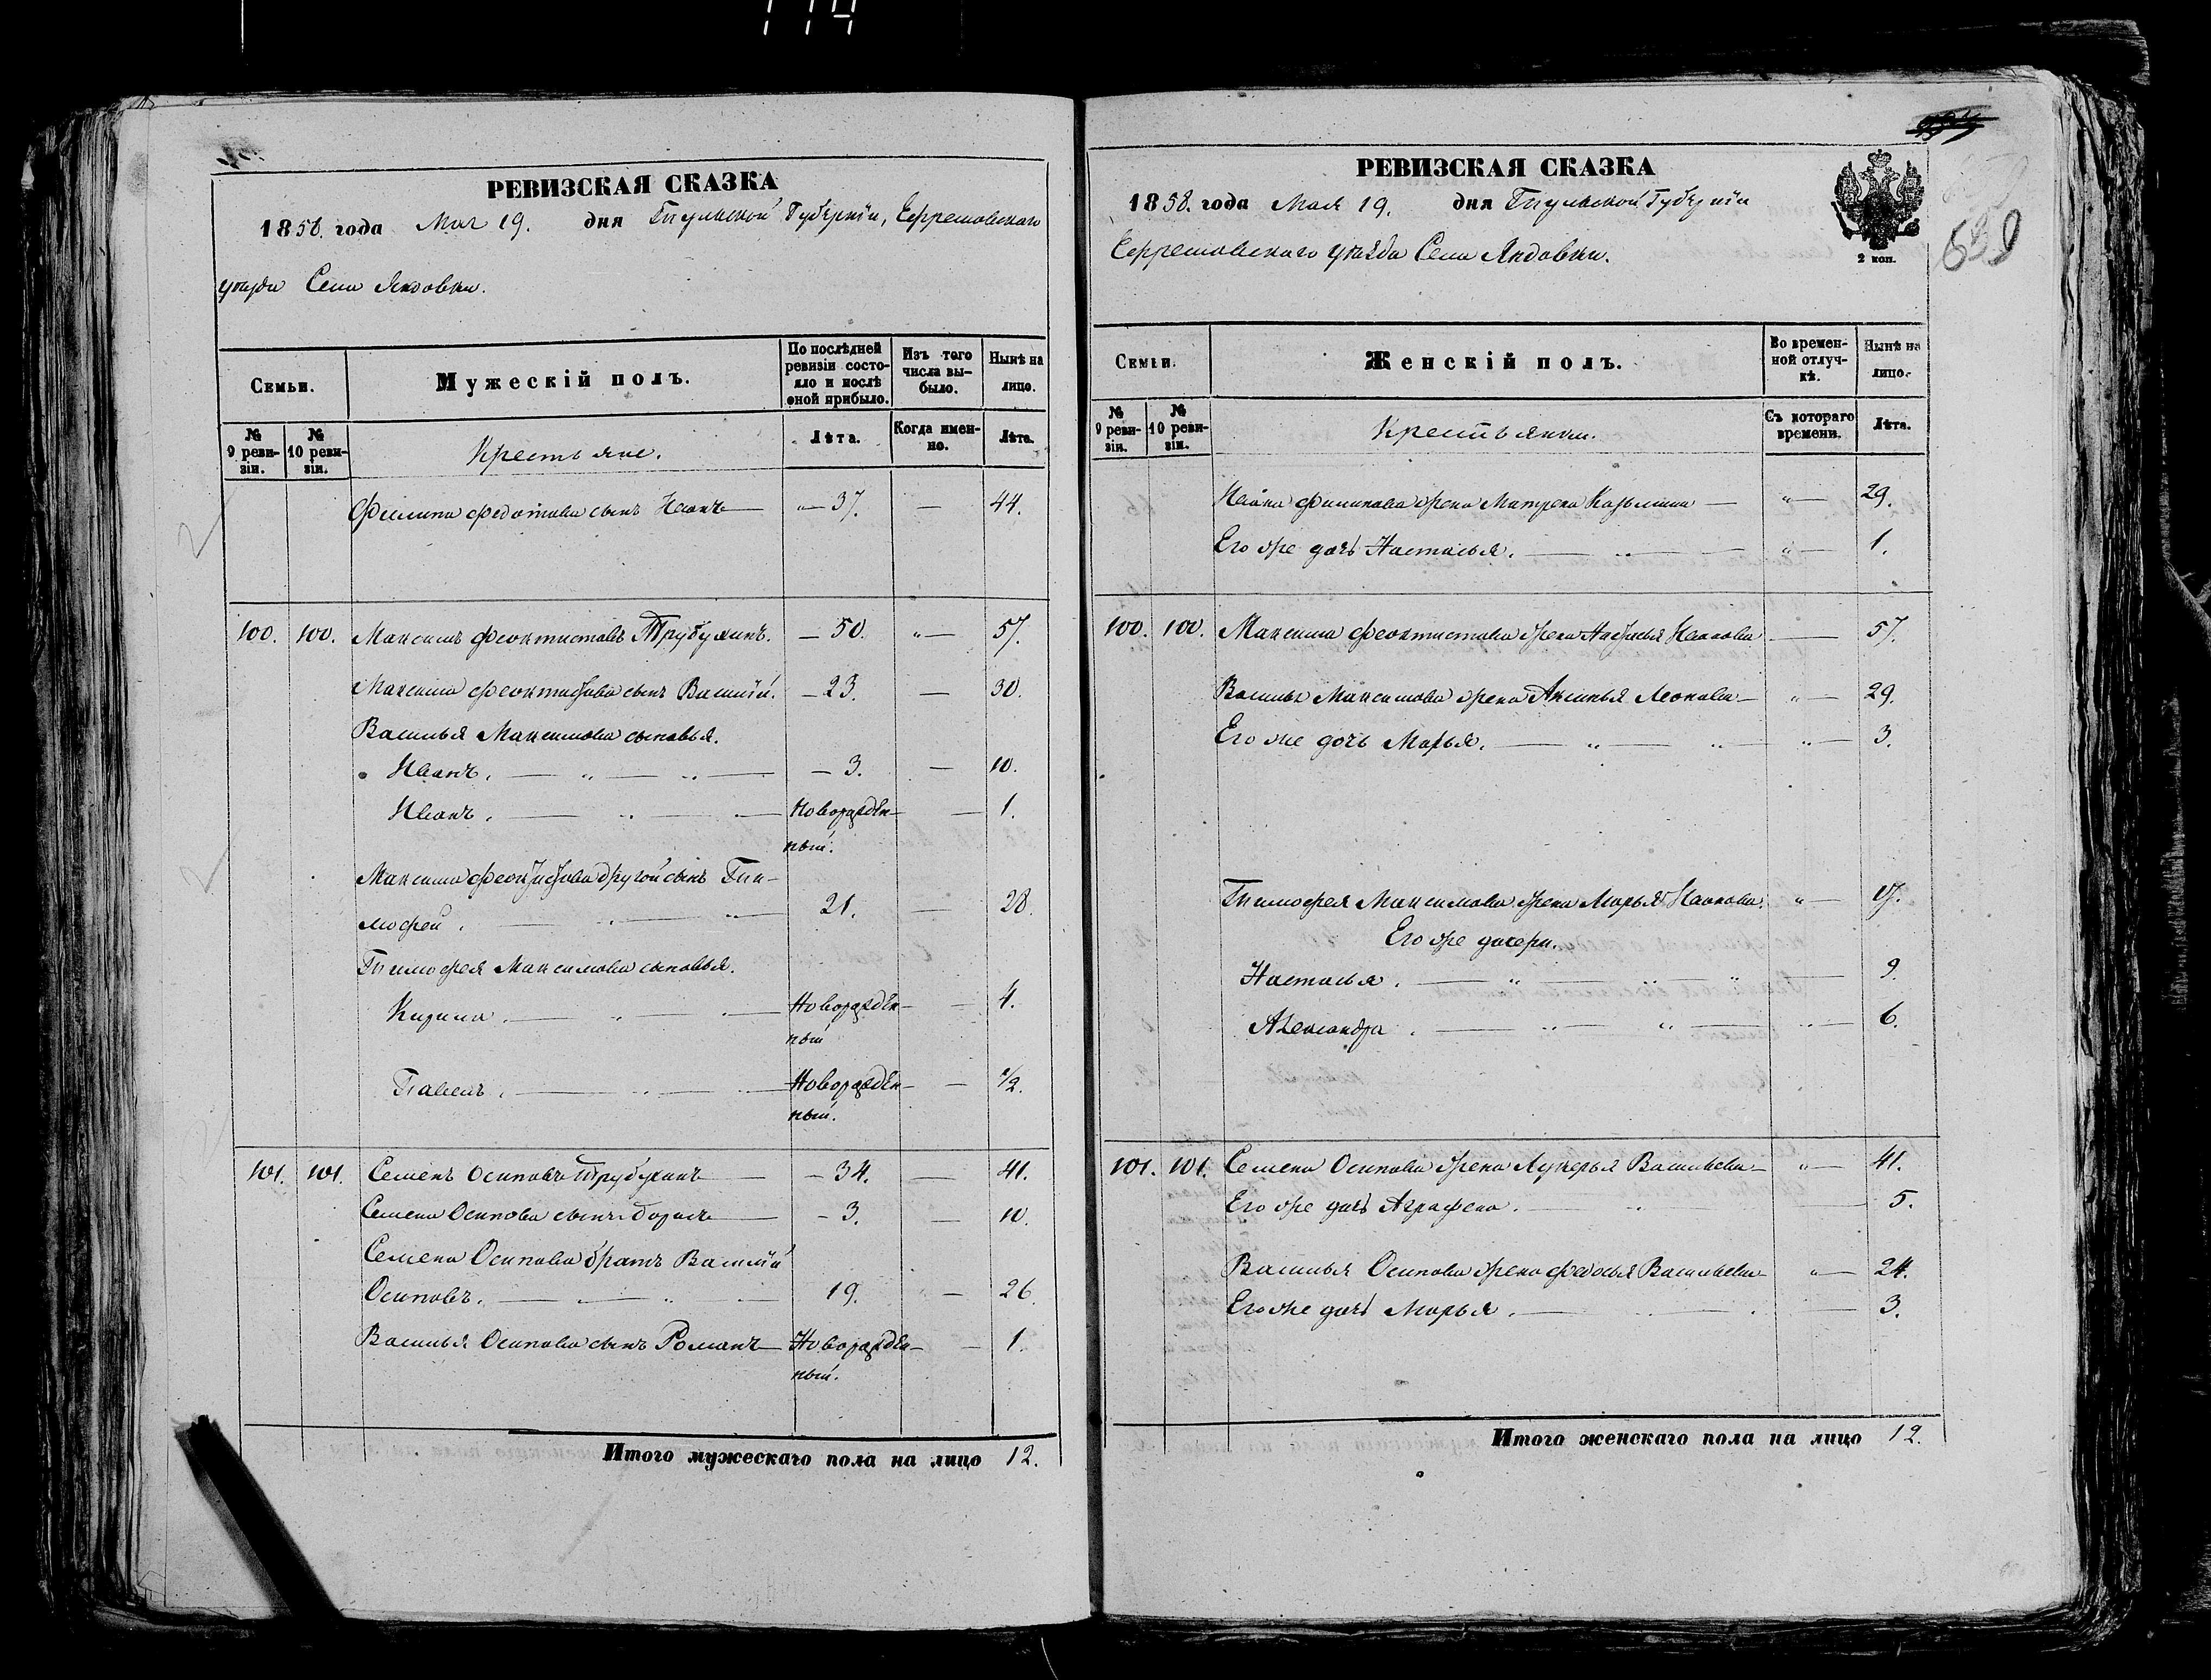 114
РЕВИЗСКАЯ СКАЗКА
1858. года Мая 19. дня Тульской Губерніи, Ефремовскаго
уезда Села Яндовки.
Семьи.
Мужескій полъ.
По послѣдней ревизіи состояло и послѣ оной прибыло.
Изъ того числа выбыло.
Нынѣ на лицо.
№ 9 ревизіи.
№ 10 ревизіи.
Крестьяне.
Лѣта.
Когда именно.
Лѣта.
Филипа Федотова сынъ Иванъ — 37. — 44.
100. 100. Максимъ Феоктистовъ Трубухинъ. — 50. — 57.
Максима Феоктистова сынъ Василій. — 23. — 30.
Василья Максимова сыновья.
Иванъ. — 3. — 10.
Иванъ. Новорожден- — 1.
ный.
Максима Феоктистова другой сынъ Ти-
мофей. 21. — 28.
Тимофея Максимова сыновья.
Кирила. Новорожден- — 4.
ный
Павелъ. Новорожден- — 1/2.
ный.
101. 101. Семенъ Осиповъ Трубухинъ — 34. — 41.
Семена Осипова сынъ Борисъ — 3. — 10.
Семена Осипова братъ Василій
Осиповъ. 19. — 26.
Василья Осипова сынъ Романъ — Новорожден- — 1.
ный.
Итого мужескаго пола на лицо 12.
РЕВИЗСКАЯ СКАЗКА
1858. года Мая 19. дня Тульской Губерніи
Ефремовскаго уѣзда Села Яндовки.
2 коп.
Семьи.
Женскій полъ.
Во временной отлучкѣ.
Нынѣ на лицо.
№ 9 ревизіи.
№ 10 ревизіи.
Крестьянки.
Съ котораго времени.
Лѣта.
Ивана Филипова жена Матрена Козьмина — 29.
Его же дочь Настасья. — 1.
100. 100. Максима Феоктистова жена Настасья Иванова — 57.
Василья Максимова жена Аксинья Леонова — 29.
Его же дочь Марья. — 3.
Тимофея Максимова жена Марья Иванова.
Его же дочери.
Настасья. — 9.
Александра. — 6.
101. 101. Семена Осипова жена Лукерья Васильева — 41.
Его же дочь Аграфена. — 5.
Василья Осипова жена Федосья Васильева — 24.
Его же дочь Марья. — 3.
Итого женскаго пола на лицо 12.